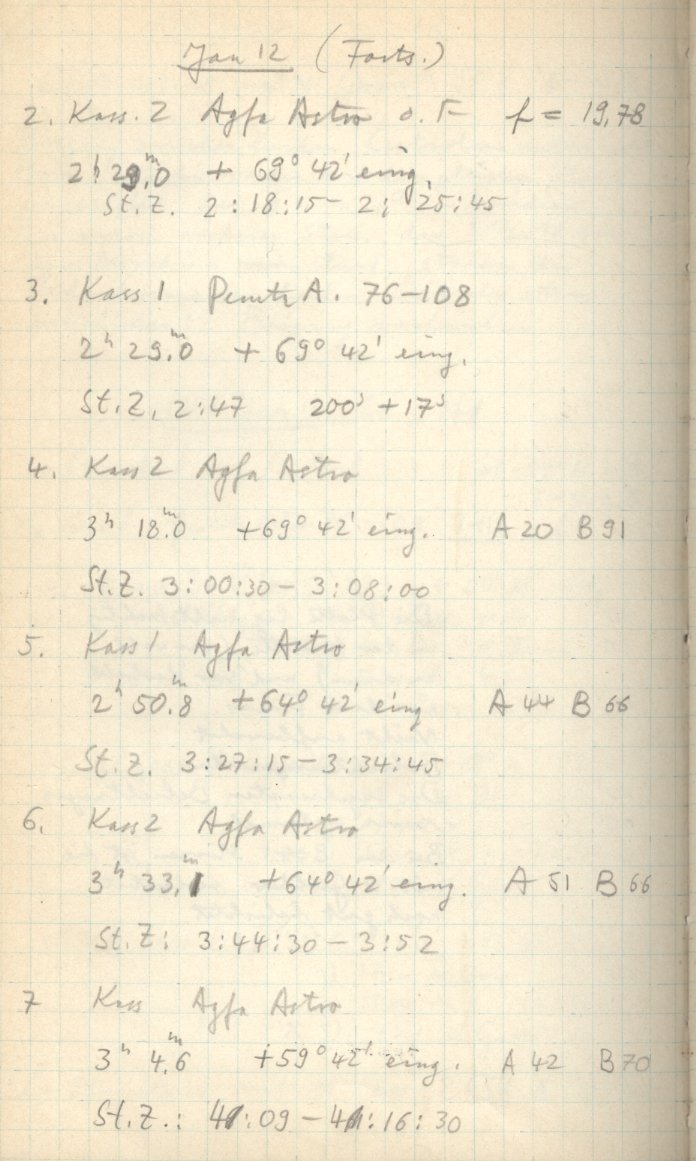 Jan 12 (Forts.)
2. Kass. 2 Agfa Astro o. F f = 19,78
2h 29.m0 + 69° 42' eing.
St. Z. 2:18:15 - 2:25:45
3. Kass 1 A. 76-108
2h 29.m0 + 69° 42' eing.
St. Z. 2:47 200s + 17s
4. Kass 2 Agfa Astro
3h 18.m0 + 69° 42' eing. A 20 B 91
St. Z. 3:00:30 - 3:08:00
5. Kass 1 Agfa Astro
2h 50.m8 + 64° 42' eing A 44 B 66
St. Z. 3:27:15 - 3:34:45
6. Kass 2 Agfa Astro
3h 33.m1 + 64° 42' eing. A 51 B 66
St. Z: 3:44:30 - 3:52
7 Kass Agfa Astro
3h 4.m6 + 59° 42' eing. A 42 B 70
St. Z.: 4:09 - 4:16:30